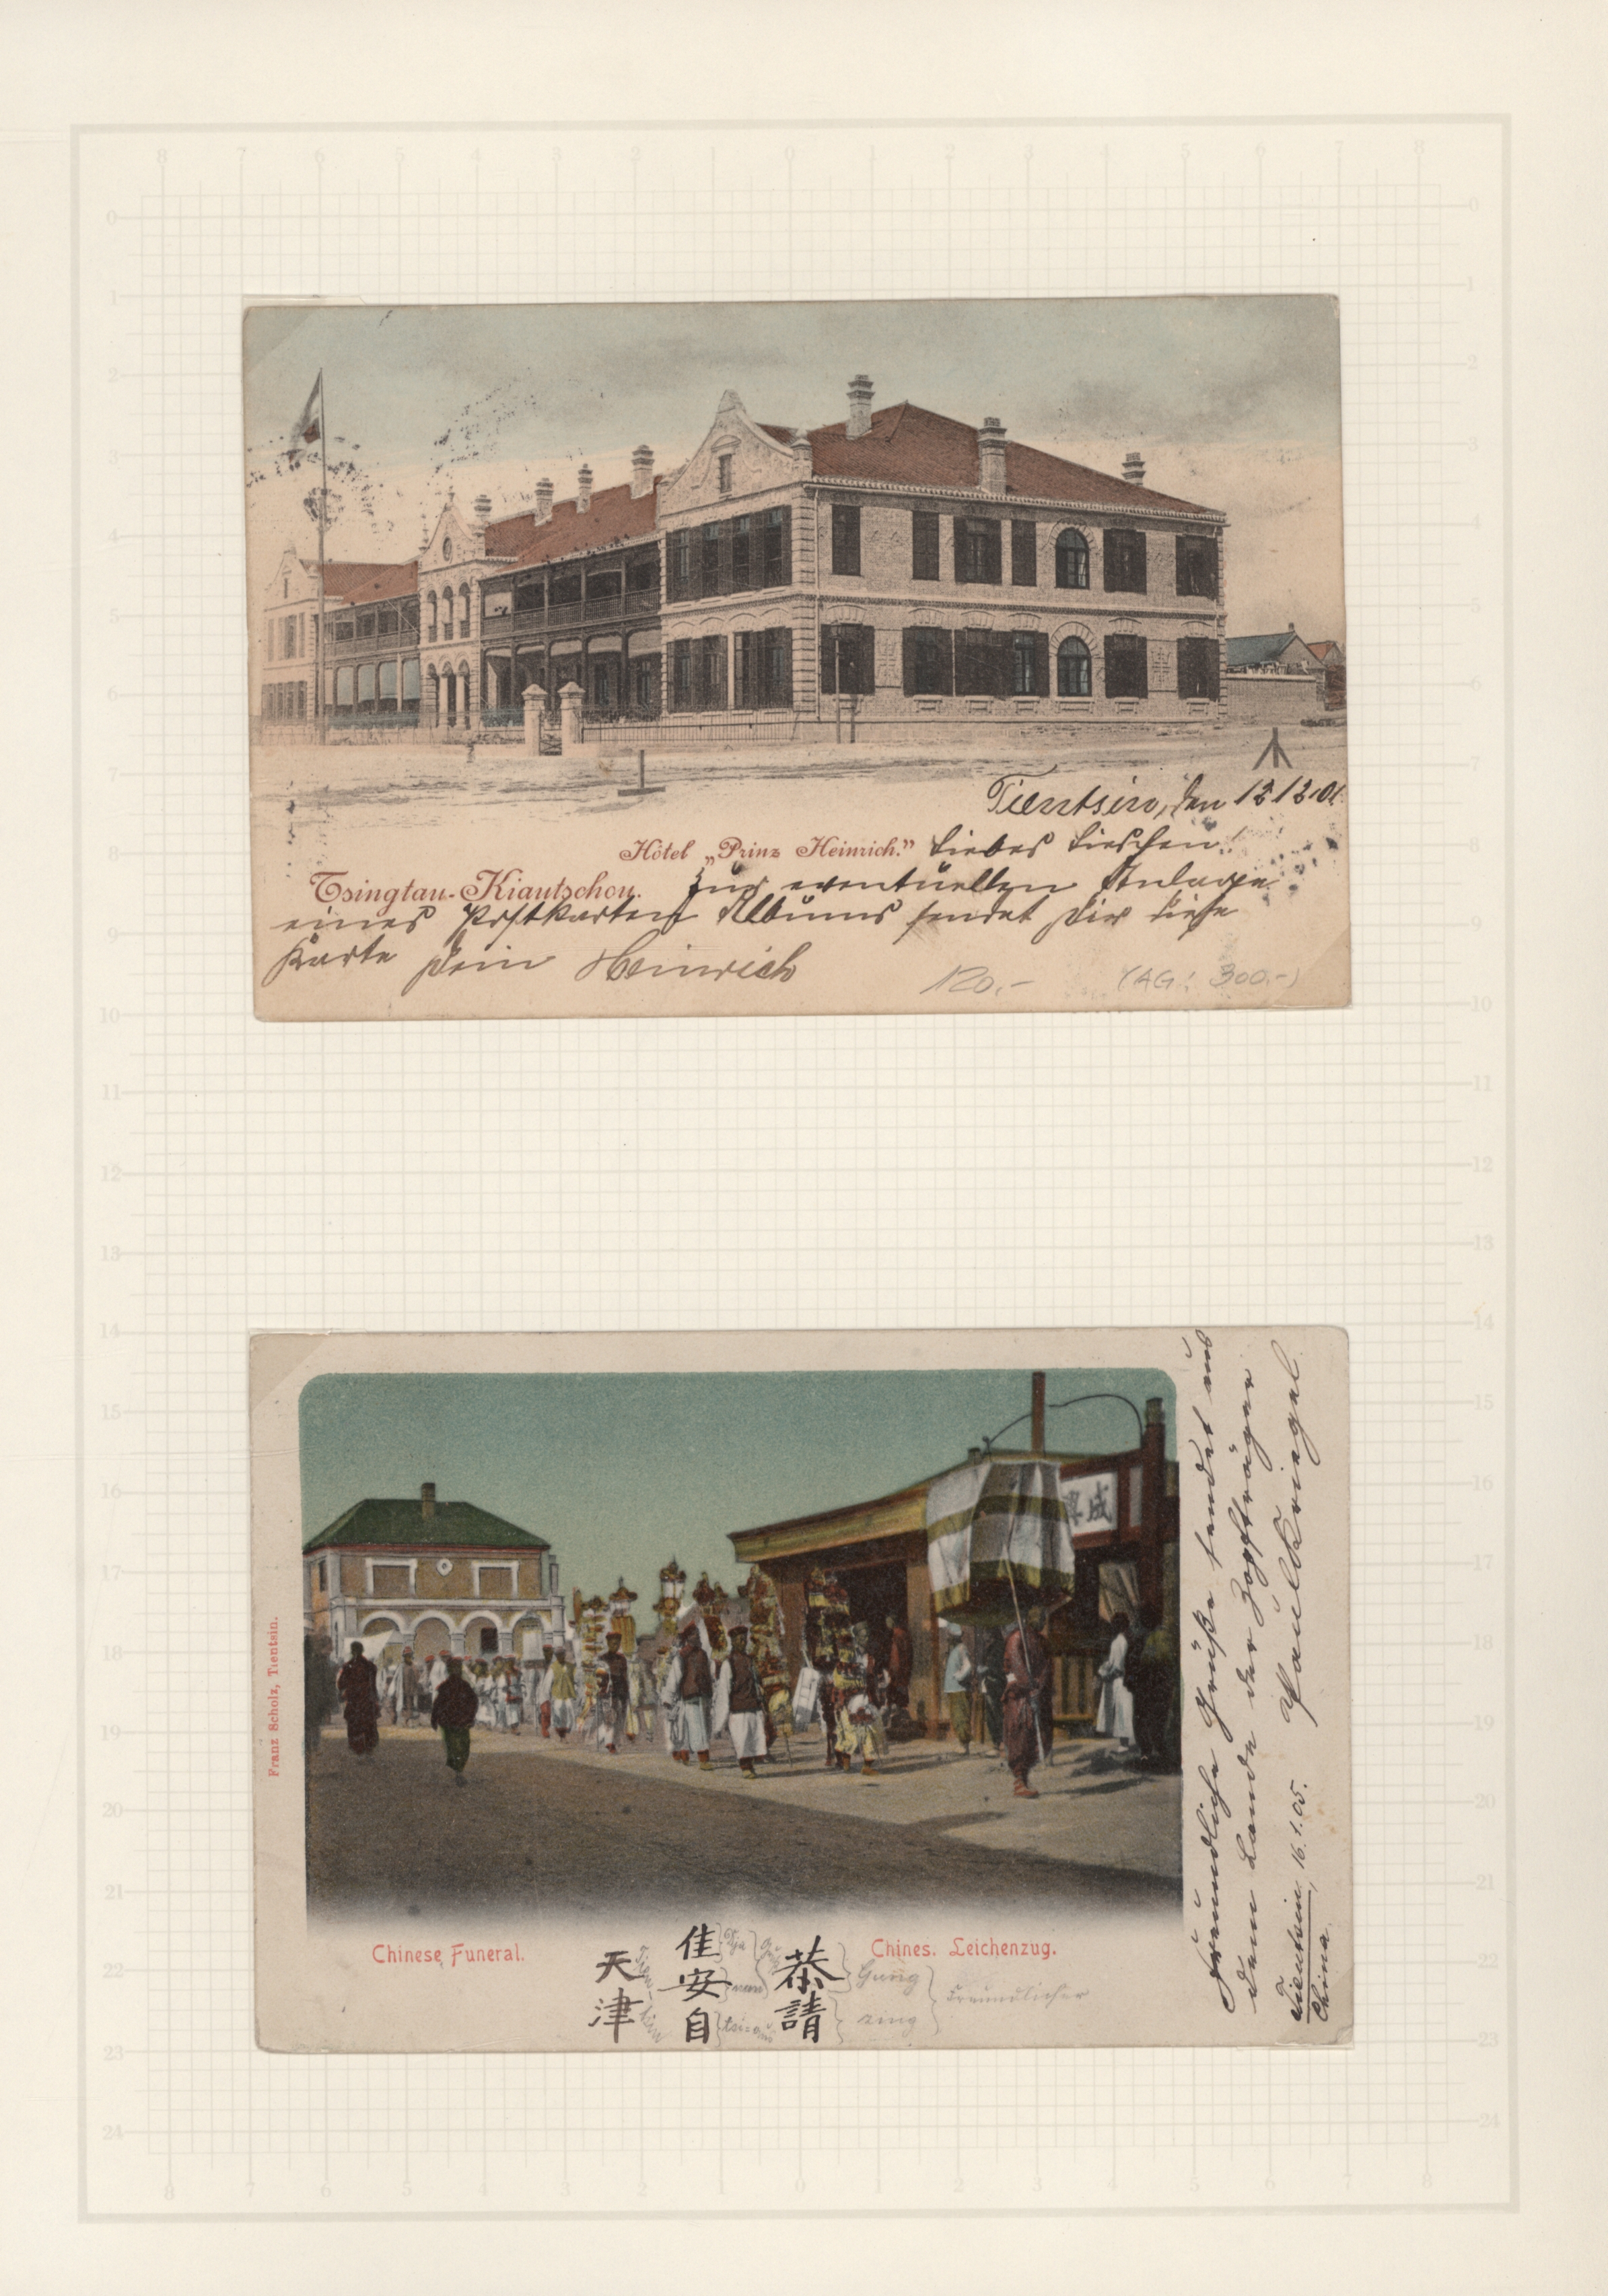 Tientsin, den 12.12.01
Hôtel „Prinz Heinrich.” Liebes Lieschen!
Tsingtau-Kiautschou. Zur eventuellen Anlage
eines Postkarten Albums sendet Dir diese
Karte Dein Heinrich
120,- (AG: 300.-)
興成
Franz Scholz, Tientsin.
Chinese Funeral.
Chines. Leichenzug.
恭請
佳安自
天津
Gung
zing
Freundlicher
Freundliche Grüße sendet aus
dem Lande der Zopfträger
Paul Kriegel
Tientsin, 16.1.05.
China